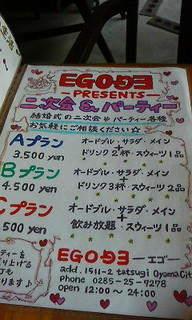 EGOエゴ
PRESENTS
二次会 & パーティー
結婚式の二次会や パーティー各種
お気軽にご相談ください☆
Aプラン
3.500 yen
オードブル・サラダ・メイン
ドリンク2杯・スウィーツ1品
Bプラン
4.500 yen
オードブル・サラダ・メイン
ドリンク3杯・スウィーツ2品
Cプラン
500 yen
オードブル・サラダ・メイン
+
飲み放題・スウィーツ1品
EGOエゴ ーエゴー
add. 1511-2 tatsugi Oyama City
phone 0285-25-9278
open 12:00 〜 24:00
ティーを
り上げる
も
ります♪